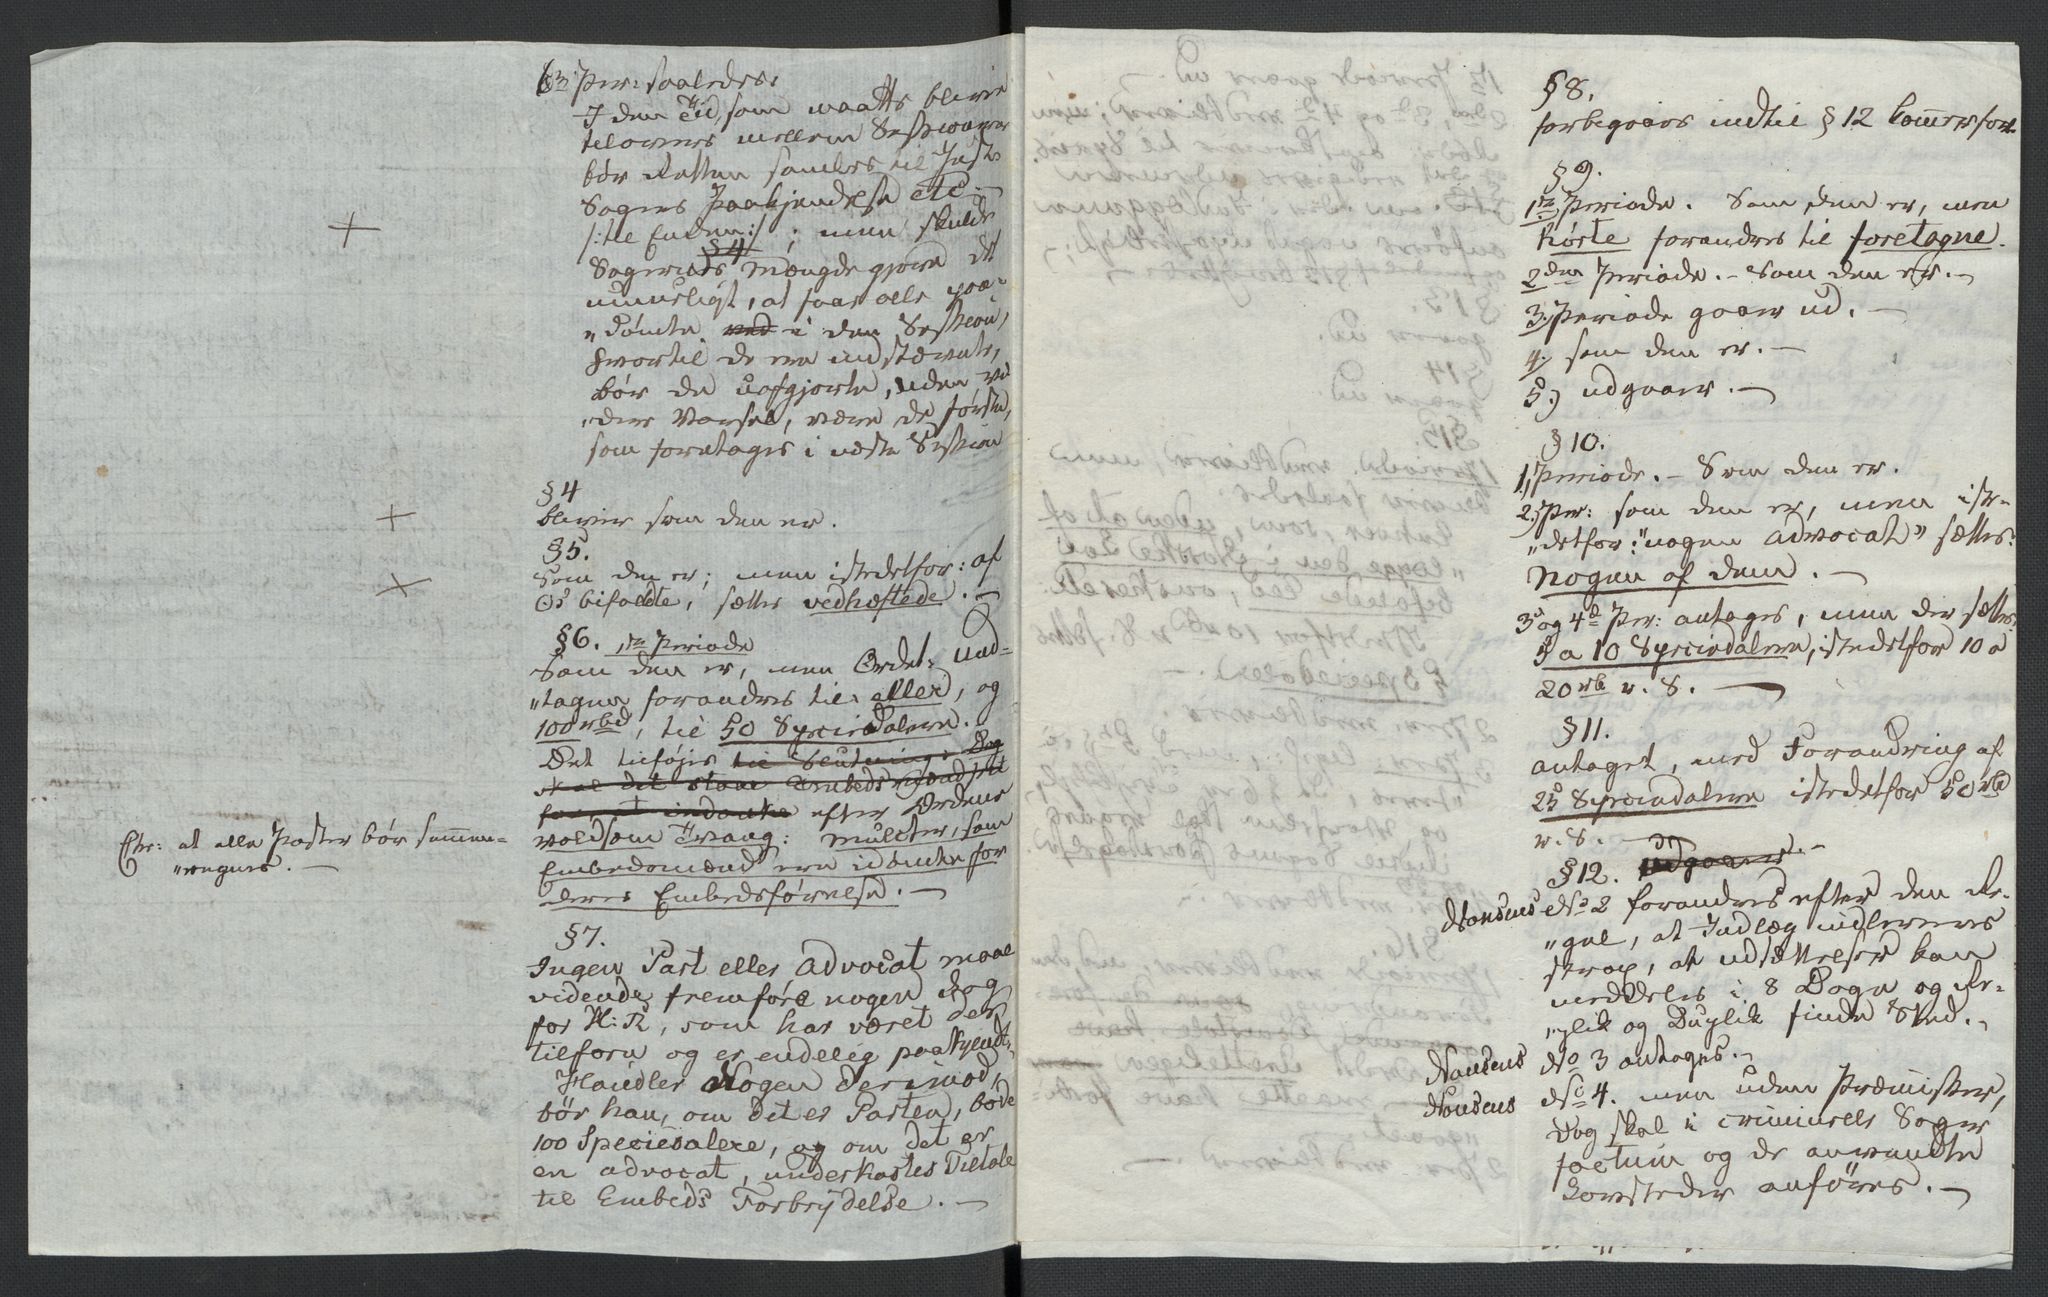 6te Per: saaledes:
I den Tid, som maatte blive
tilovers mellem Sessionerne
bør Retten samles til Just:
Sagers Paakjendelse etc
/:til Enden:/ ; men skulde
§4
Sagernes Mængde gjøre det
umueligt, at faae alle paa-
"dømte ved i den Session,
hvortil de ere indstævnte,
bør de uafgjorte, uden vi-
"dere Varsel, være de første,
som foretages i næste Session
§4
bliver som den er.
§5.
Som den er; men istedetfor: af
Os bifaldte, sættes vedhæftede. —
§6. 1te Periode
Som den er, men Ordet: und-
"tagen forandres til: eller, og
100 rbd, til 50 Speciedalere.
Det tilføjes til Slutning: Dog
skal det staae Embedsmænd frit
for at indanke efter Ordene
voldsom Tvang: Mulcter, som
Embedsmænd ere idømte for
deres Embedsførrelse. —
Chr: at alle Poster bør sammen-
"regnes. —
§7.
Ingen Part eller Advocat maae
vidende fremføre nogen Sag
for H: R, som har været der
tilforn og er endelig paakjendt,
Handler Nogen derimod,
bør han, om det er Parten, bøde
100 Speciedalere, og om det er
en Advocat, underkastes Tiltale
til Embeds Forbrydelse. —
§8.
forbigaaes indtil § 12 kommer for.
§9.
1te Periode. Som den er, men
hørte forandres til foretagne.
2den Periode. — Som den er. —
3. Periode gaaer ud. —
4) som den er. —
5.) udgaaer. —
§10.
1, Periode. — Som den er.
2. Per: som den er, men iste-
"detfor: "nogen Advocat" sættes:
Nogen af dem. —
3 og 4de Per: antages, men der sættes:
5 a 10 Speciedalere, istedetfor 10 a
20 rb r. S. —
§11.
antaget, med Forandring af
25 Speciedalere istedetfor 50 rbd
r. S. —
§12. udgaaer. —
Hansens No 2 forandres efter den Re-
"gel, at Indlæg indleveres
strax, at udsættelser kan
meddeles i 8 Dage og Re-
"plik og Duplik finde Sted. —
Hansens No 3 antages. —
Hansens No 4. men uden Præmisser,
dog skal i criminelle Sager
factum og de anvendte
Lovsteder anføres. —